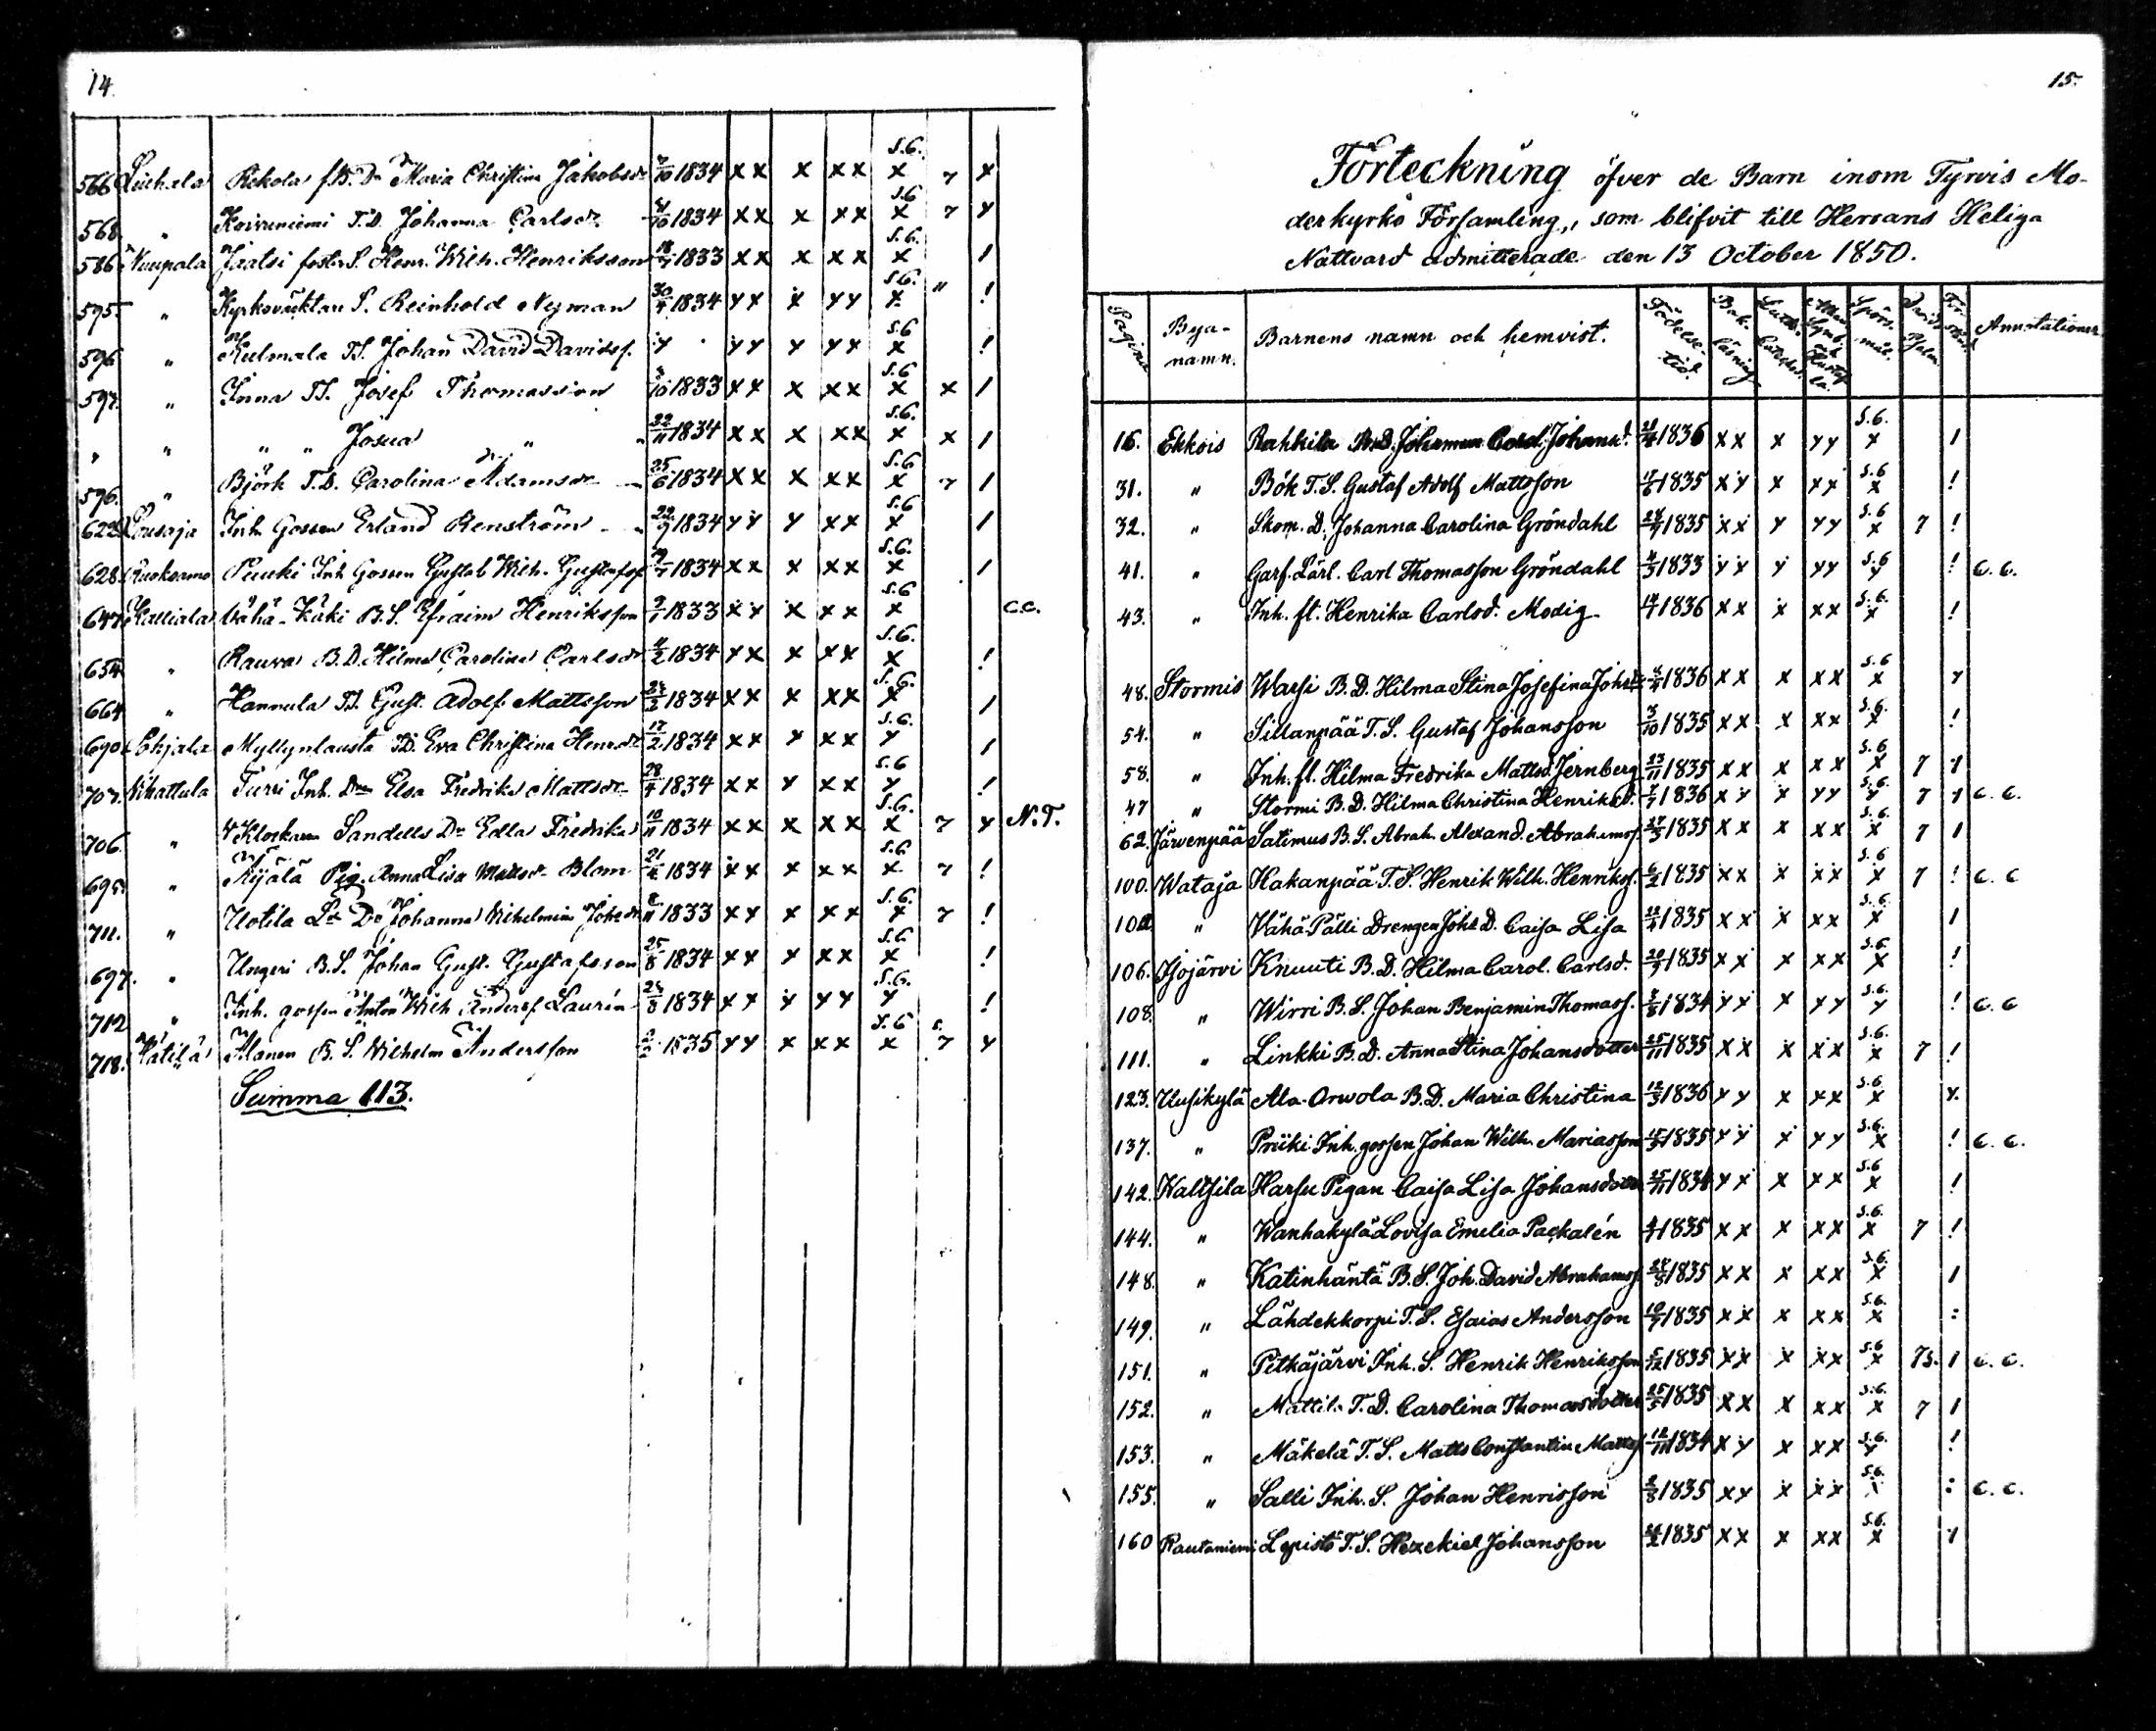 14.
566 Liuhala Rekola f.B. Dr Maria Christina Jakobsdr 1834 xx x xx S.6. x 7 x
568. " Koivuniemi T.D. Johanna Carlsdr 1834 xx x xx S.6 x 7 x
586 Nuupala Jaatsi foster S. Henr. Wilh. Henriksson 18/7 1833 xx x xx S.6. x /
595. " Kyrkoväktan S. Reinhold Nyman 30/7 1834 xx x xx S.6. x " !
596 " Kulmala T.S. Johan David Davidss. " xx x xx S.6 x !
597. " Inna T.S. Josef Thomasson 1833 xx x xx S.6 x x /
" " " " Josua " 22/11 1834 xx x xx S.6. x x /
596. " Björk T.D. Carolina Adamsdr 25/6 1834 xx x xx S.6 x 7 /
622 Lousaja Inh. Gossen Erland Renström 22/9 1834 xx x xx S.6 x /
628. Ruoksamo Puuki Inh Gossen Gustab Wilh. Gustafss. 1834 xx x xx S.6. x /
647. Kalliala Vähä-Käki B.S. Efraim Henriksson 1833 xx x xx S.6 x C.C.
654 " Rauva B.D. Hilma Carolina Carlsdr 1834 xx x xx S.6. x !
664 " Hannula T.S. Gust. Adolf Mattsson 1834 xx x xx S.6. x /
690. Lohjala Myllynlausta T.D. Eva Christina Henrdr 17/2 1834 xx x xx S.6. x /
707. Wihattula Turri Inh. Drn Elsa Fredrika Mattsdr 28/4 1834 xx x xx S.6 x !
706. " Klockaren Sandells Dr Edla Fredrika 10/11 1834 xx x xx S.6. x 7 x N.T.
695. " Äijälä Pig. Anna Lisa Mattsdr Blom 1834 xx x xx S.6 x 7 !
711. " Uotila Dr Johanna Wilhelmina Johsdr 1833 xx x xx S.6. x 7 !
697. " Ungeri B.S. Johan Gust. Gustafsson 25/8 1834 xx x xx S.6 x !
712 " Inh. gossen Anton Wilh. Anderss. Laurin 1834 xx x xx S.6. x !
718. Kätilä Alanen B.S. Wilhelm Andersson 1835 xx x xx S.6 x 7 x
Summa 113.
15.
Förteckning öfver de Barn inom Tyrvis Mo-
derkyrko Församling,, som blifvit till Herrans Heliga
Nattvard admitterade den 13 October 1850.
Pagina Bya-namn. Barnens namn och hemvist. Födelse-tid. Bok-läsning Luth. Cateches. Spörs-mål. Davids Psalm. Annotationer
16. Ekkois Rahkila B.D. Johanna Carol. Johansd. 1836 xx x xx S.6. x /
31. " Bök T.S. Gustaf Adolf Mattsson 1835 xx x xx S.6 x !
32. " Skom. D. Johanna Carolina Gröndahl 1835 xx x xx S.6 x 7 !
41. " Garf. Lärl. Carl Thomasson Gröndahl 1833 xx x xx S.6 x ! C.C.
43. " Inh. fl. Henrika Carlsd. Modig 1836 xx x xx S.6. x !
48. Stormis Warsi B.D. Hilma Stina Josefina Johsd. 1836 xx x xx S.6 x x
54. " Sillanpää T.S. Gustaf Johansson 3/10 1835 xx x xx S.6. x !
58. " Inh. fl. Hilma Fredrika Mattsd. Jernberg 23/11 1835 xx x xx S.6 x 7 x
47 " Stormi B.D. Hilma Christina Henriksd. 1836 xx x xx S.6. x 7 x C.C.
62. Järvenpää Satimus B.S. Abrah. Alexand. Abrahamss. 1835 xx x xx S.6. x 7 /
100. Wataja Hakanpää T.S. Henrik Wilh. Henrikss. 1835 xx x xx S.6 x 7 ! C.C
102 " Vähä-Pälli Drengen Johs D. Caisa Lisa 1835 xx x xx S.6. x /
106. Isojärvi Knuuti B.D. Hilma Carol. Carlsd. 1835 xx x xx S.6. x !
108. " Wirri B.S. Johan Benjamin Thomass. 1834 xx x xx S.6. x ! C.C
111. " Linkki B.D. Anna Stina Johansdotter 25/11 1835 xx x xx S.6. x 7 !
123. Uusikylä Ala-Orwola B.D. Maria Christina 12/3 1836 xx x xx S.6. x x.
137. " Priiki Inh. gossen Johan Wilh. Mariasson 1835 xx x xx S.6. x ! C.C.
142. Kaltsila Harsu Pigan Caisa Lisa Johansdotter 25/11 1834 xx x xx S.6 x !
144. " Wanhakylä Lovisa Emelia Packalén 1835 xx x xx S.6. x 7 !
148. " Katinhäntä B.S. Joh. David Abrahamss. 1835 xx x xx S.6. x /
149. " Lähdekkorpi T.S. Esaias Andersson 1835 xx x xx S.6. x :
151. " Pitkäjärvi Inh. S. Henrik Henriksson 5/12 1835 xx x xx S.6 x 7s. / C.C.
152. " Mattila T.D. Carolina Thomasdotter 25/5 1835 xx x xx S.6. x 7 /
153. " Mäkelä T.S. Matts Constantin Mattss. 1834 xx x xx S.6. x !
155. " Salli Inh. S. Johan Henrisson 1835 xx x xx S.6. x : C.C.
160 Rautaniemi Lepistö T.S. Hezekiel Johansson 1835 xx x xx S.6. x x